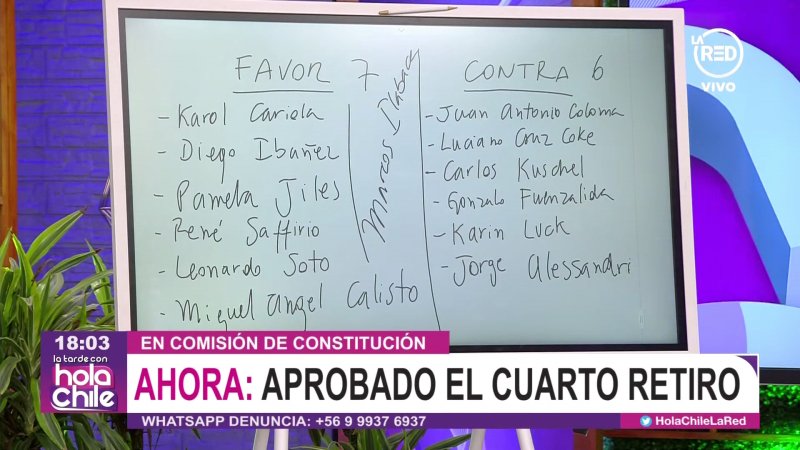 FAVOR 7
- Karol Cariola
- Diego Ibañez
- Pamela Jiles
- René Saffirio
- Leonardo Soto
- Miguel Angel Calisto
Marcos Ilabaca
CONTRA 6
- Juan Antonio Coloma
- Luciano Cruz Coke
- Carlos Kuschel
- Gonzalo Fuenzalida
- Karin Luck
- Jorge Alessandri
LA RED
VIVO
18:03
la tarde con
hola
Chile
EN COMISIÓN DE CONSTITUCIÓN
AHORA: APROBADO EL CUARTO RETIRO
WHATSAPP DENUNCIA: +56 9 9937 6937
@HolaChileLaRed